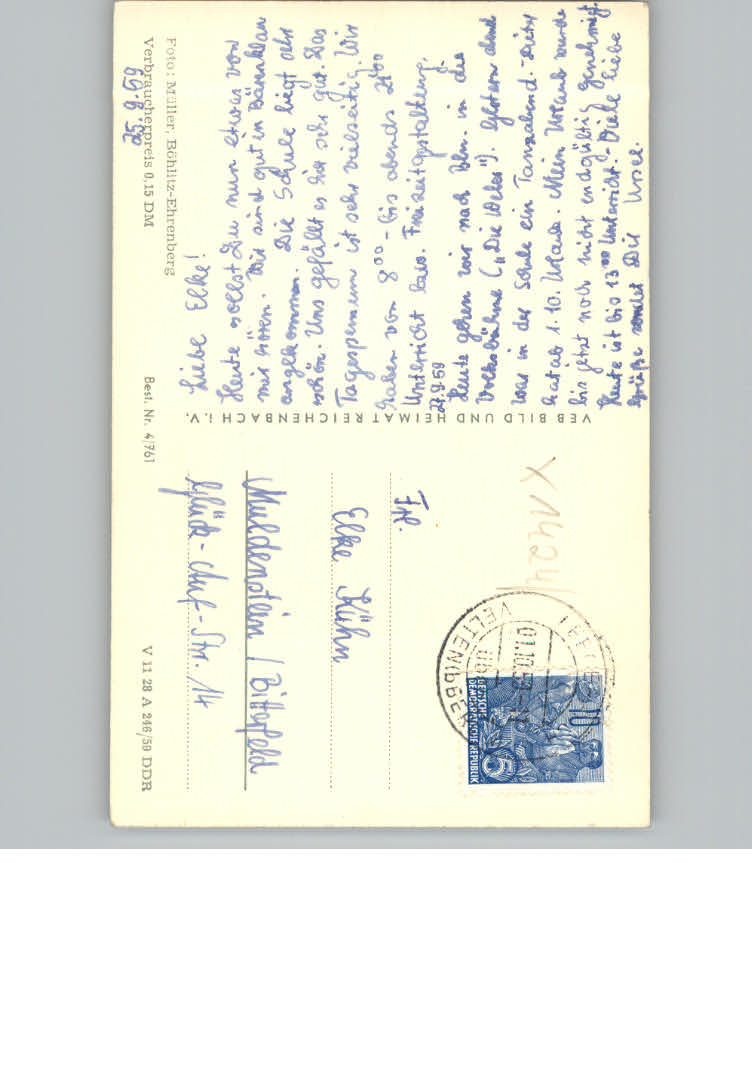 25.9.59
Liebe Elke!
Heute sollst Du nun etwas von
mir hören. Wir sind gut in Bärenklau
angekommen. Die Schule liegt sehr
schön. Uns gefällt es hier sehr gut. Das
Tagespensum ist sehr vielseitig. Wir
haben von 8⁰⁰ - bis abends 21⁰⁰
Unterricht bzw. Freizeitgestaltung.
27.9.59
Heute gehen wir nach Bln. in die
Volksbühne („Die Weber"). Gestern abend
war in der Schule ein Tanzabend.
hat ab 1.10. Urlaub. Mein Urlaub wurde
bis jetzt noch nicht endgültig genehmigt.
Heute ist bis 13⁰⁰ Unterricht. - Viele liebe
Grüße sendet Dir Ursel.
Foto: Müller, Böhlitz-Ehrenberg
Verbraucherpreis 0,15 DM
Best. Nr. 4/761
V 11 28 A 246/59 DDR
VEB BILD UND HEIMAT REICHENBACH i. V.
X1424
01.10.59
VELTEN
DEUTSCHE
DEMOKRATISCHE REPUBLIK
5
Frl.
Elke Kühn
Muldenstein / Bitterfeld
Glück-Auf-Str. 14